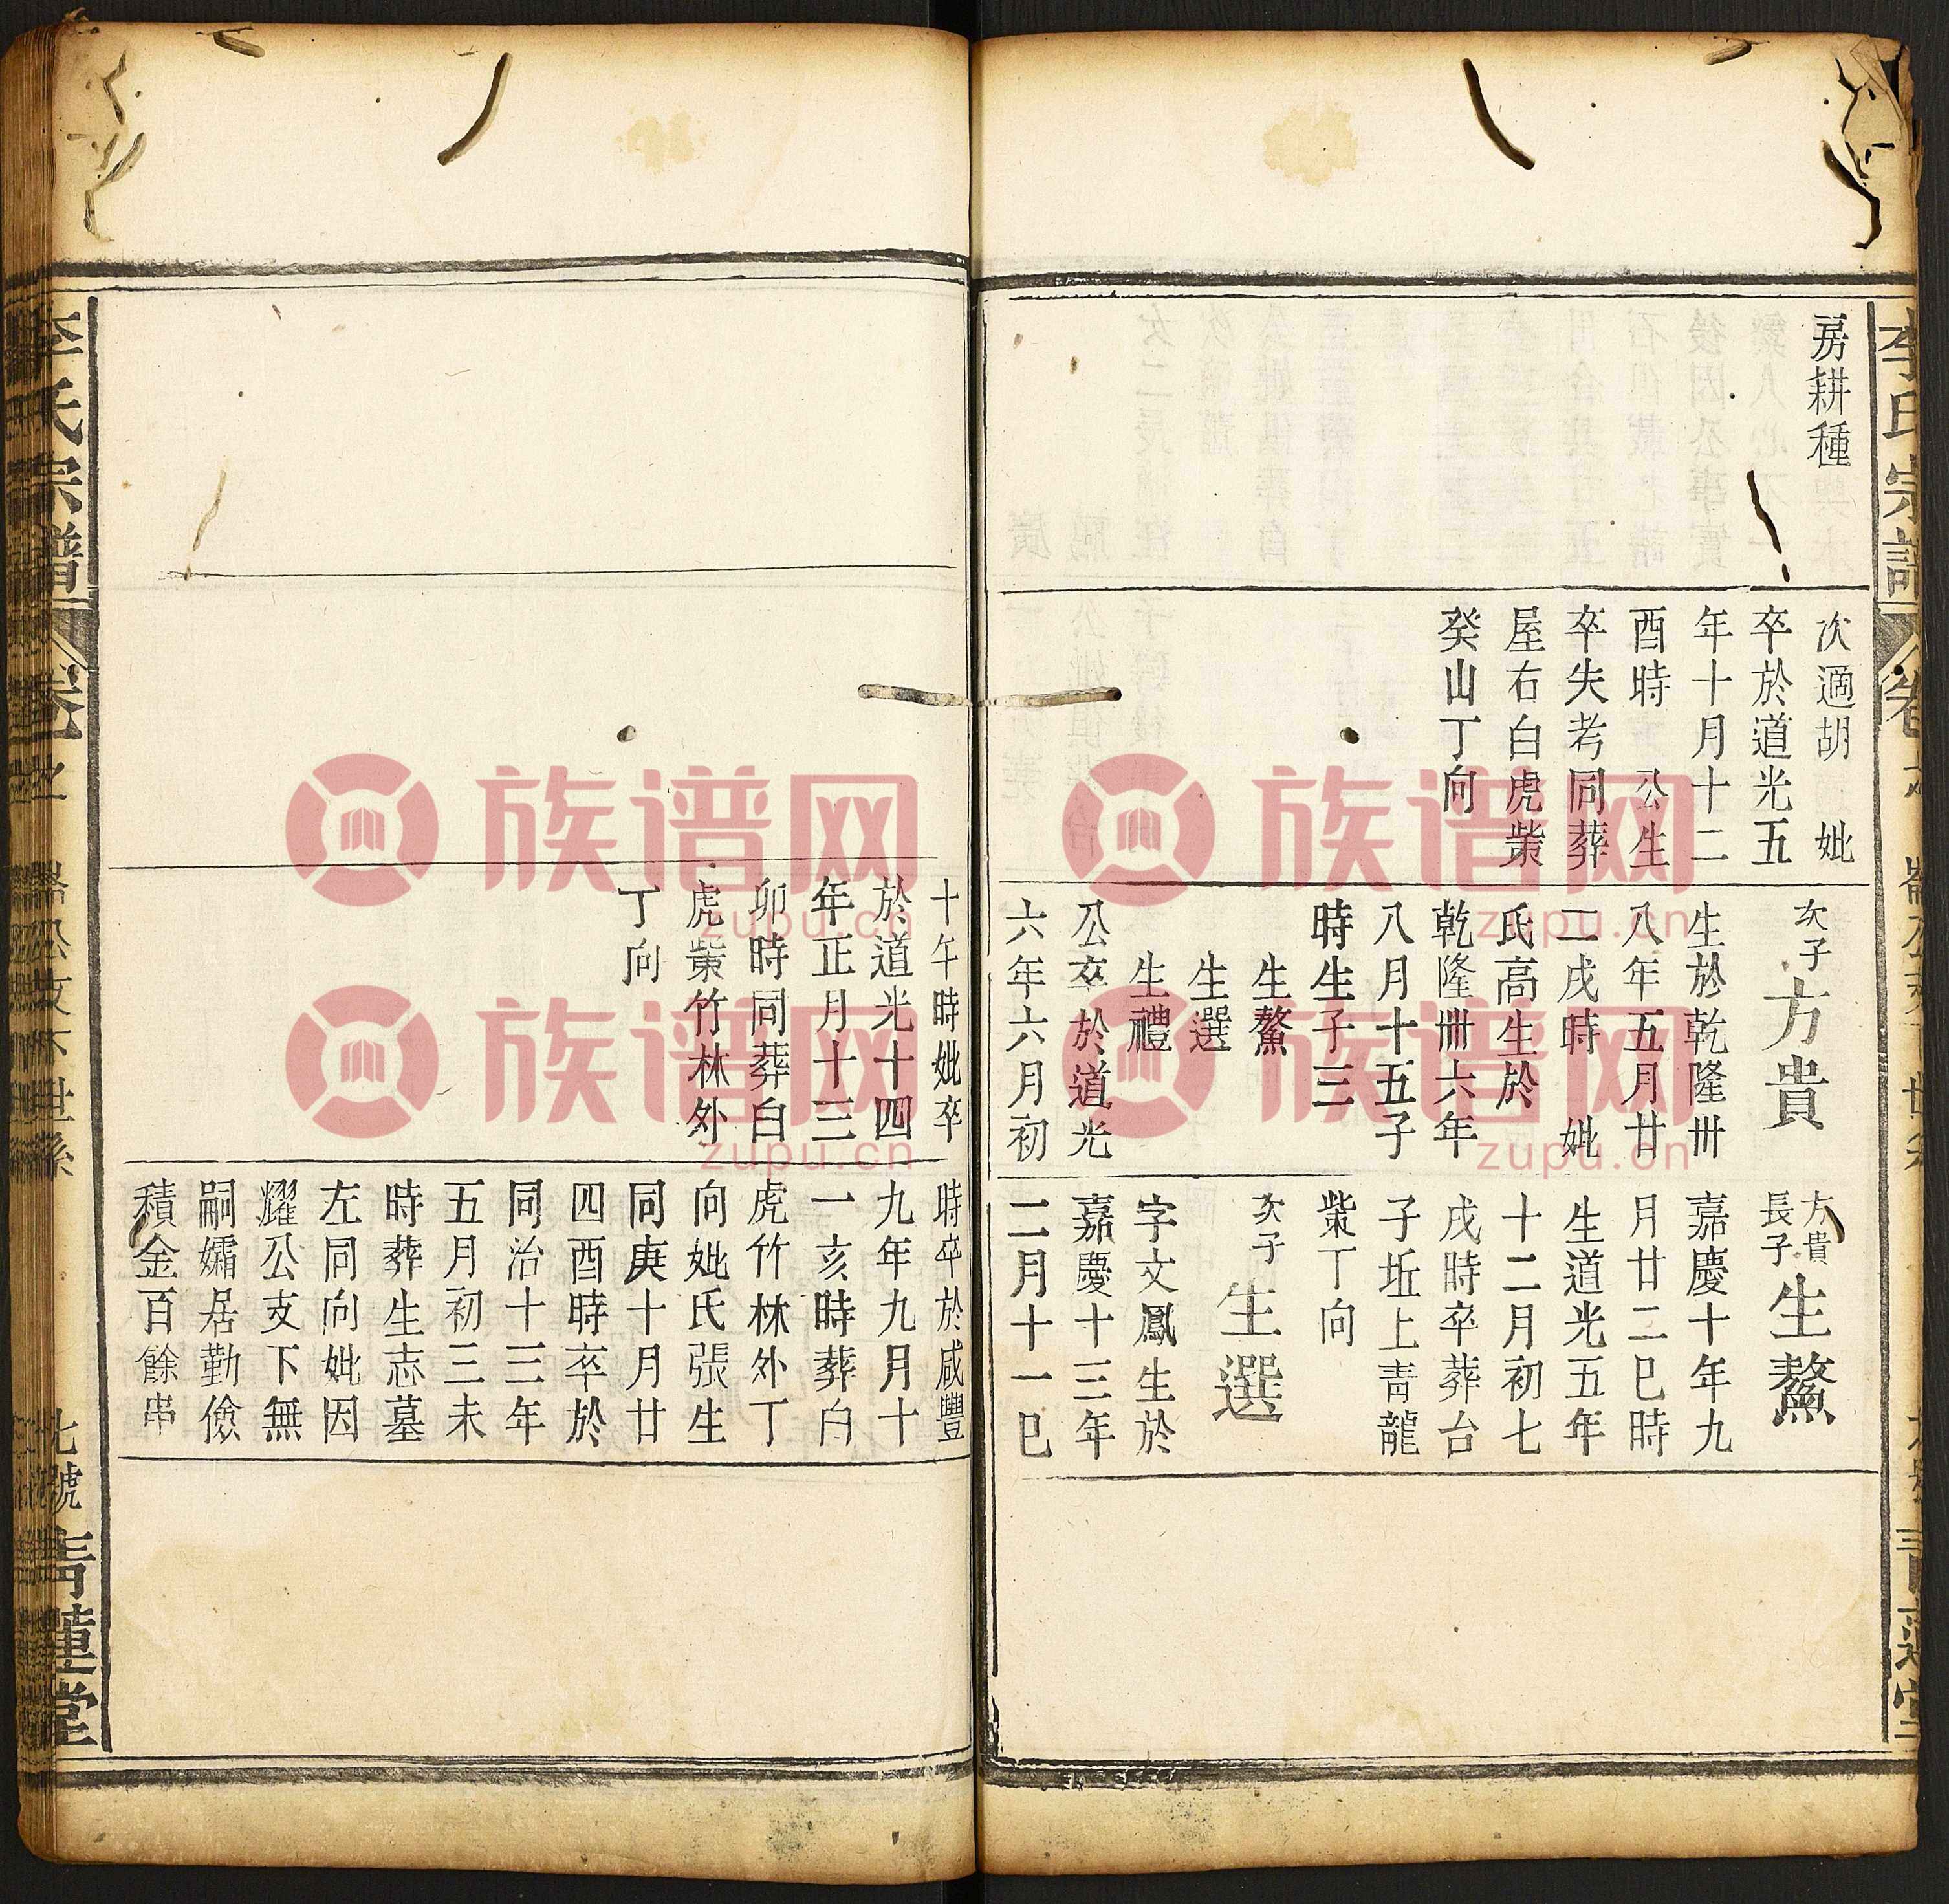 李氏宗譜
房耕種
次適胡　妣
卒於道光五
年十月十二
酉時　公生
卒失考同葬
屋右白虎粜
癸山丁向
次子 方貴
生於乾隆卅
八年五月廿
二戌時　妣
氏高生於
乾隆卌六年
八月十五子
時生子三
生鰲
生選
生禮
公卒於道光
六年六月初
方貴
長子 生鰲
嘉慶十年九
月廿二巳時
生道光五年
十二月初七
戌時卒葬台
子坵上青龍
粜丁向
次子 生選
字文鳳生於
嘉慶十三年
二月十一巳
十午時妣卒
於道光十四
年正月十三
卯時同葬白
虎粜竹林外
丁向
時卒於咸豐
九年九月十
一亥時葬白
虎竹林外丁
向妣氏張生
同庚十月廿
四酉時卒於
同治十三年
五月初三未
時葬生志墓
左同向妣因
耀公支下無
嗣孀居勤儉
積金百餘串
李氏宗譜
卷之
公支下世系
七號
青蓮堂
族谱网
zupu.cn
族谱网
zupu.cn
族谱网
zupu.cn
族谱网
zupu.cn